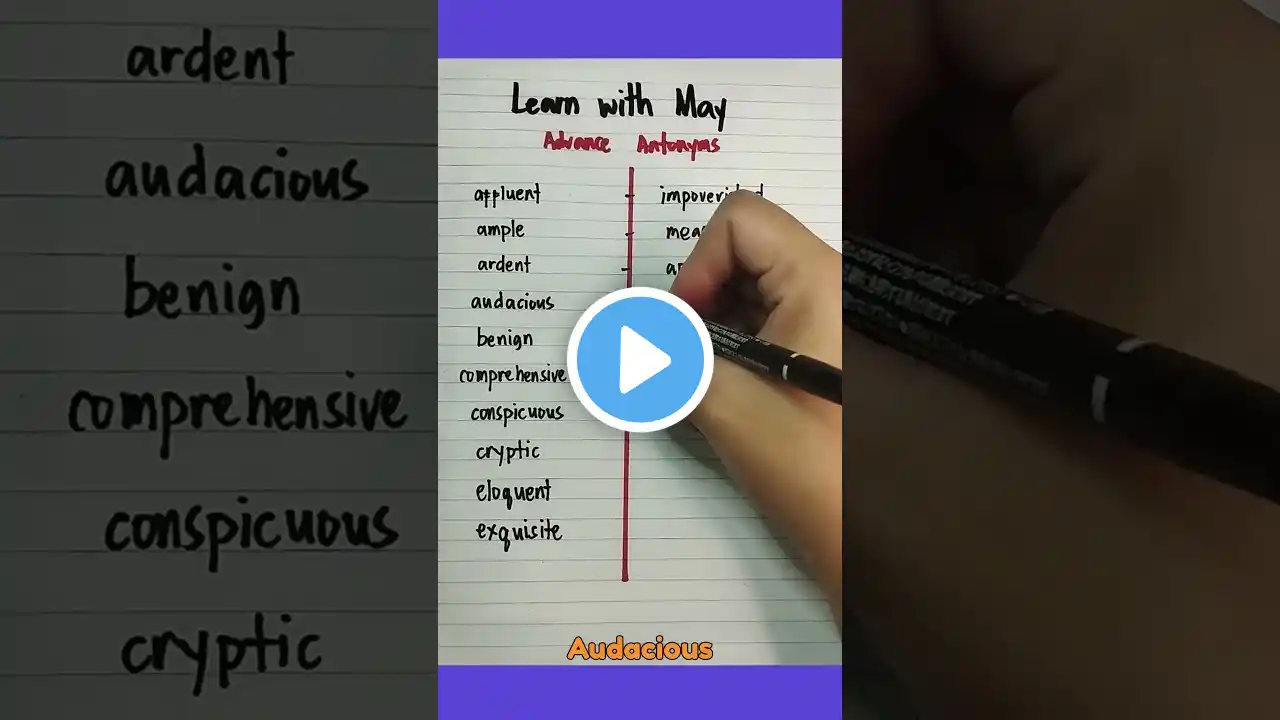 ardent
audacious
benign
comprehensive
conspicuous
cryptic
Learn with May
Advance Antonyms
affluent -
ample -
ardent -
audacious
benign
comprehensive
conspicuous
cryptic
eloquent
exquisite
Audacious